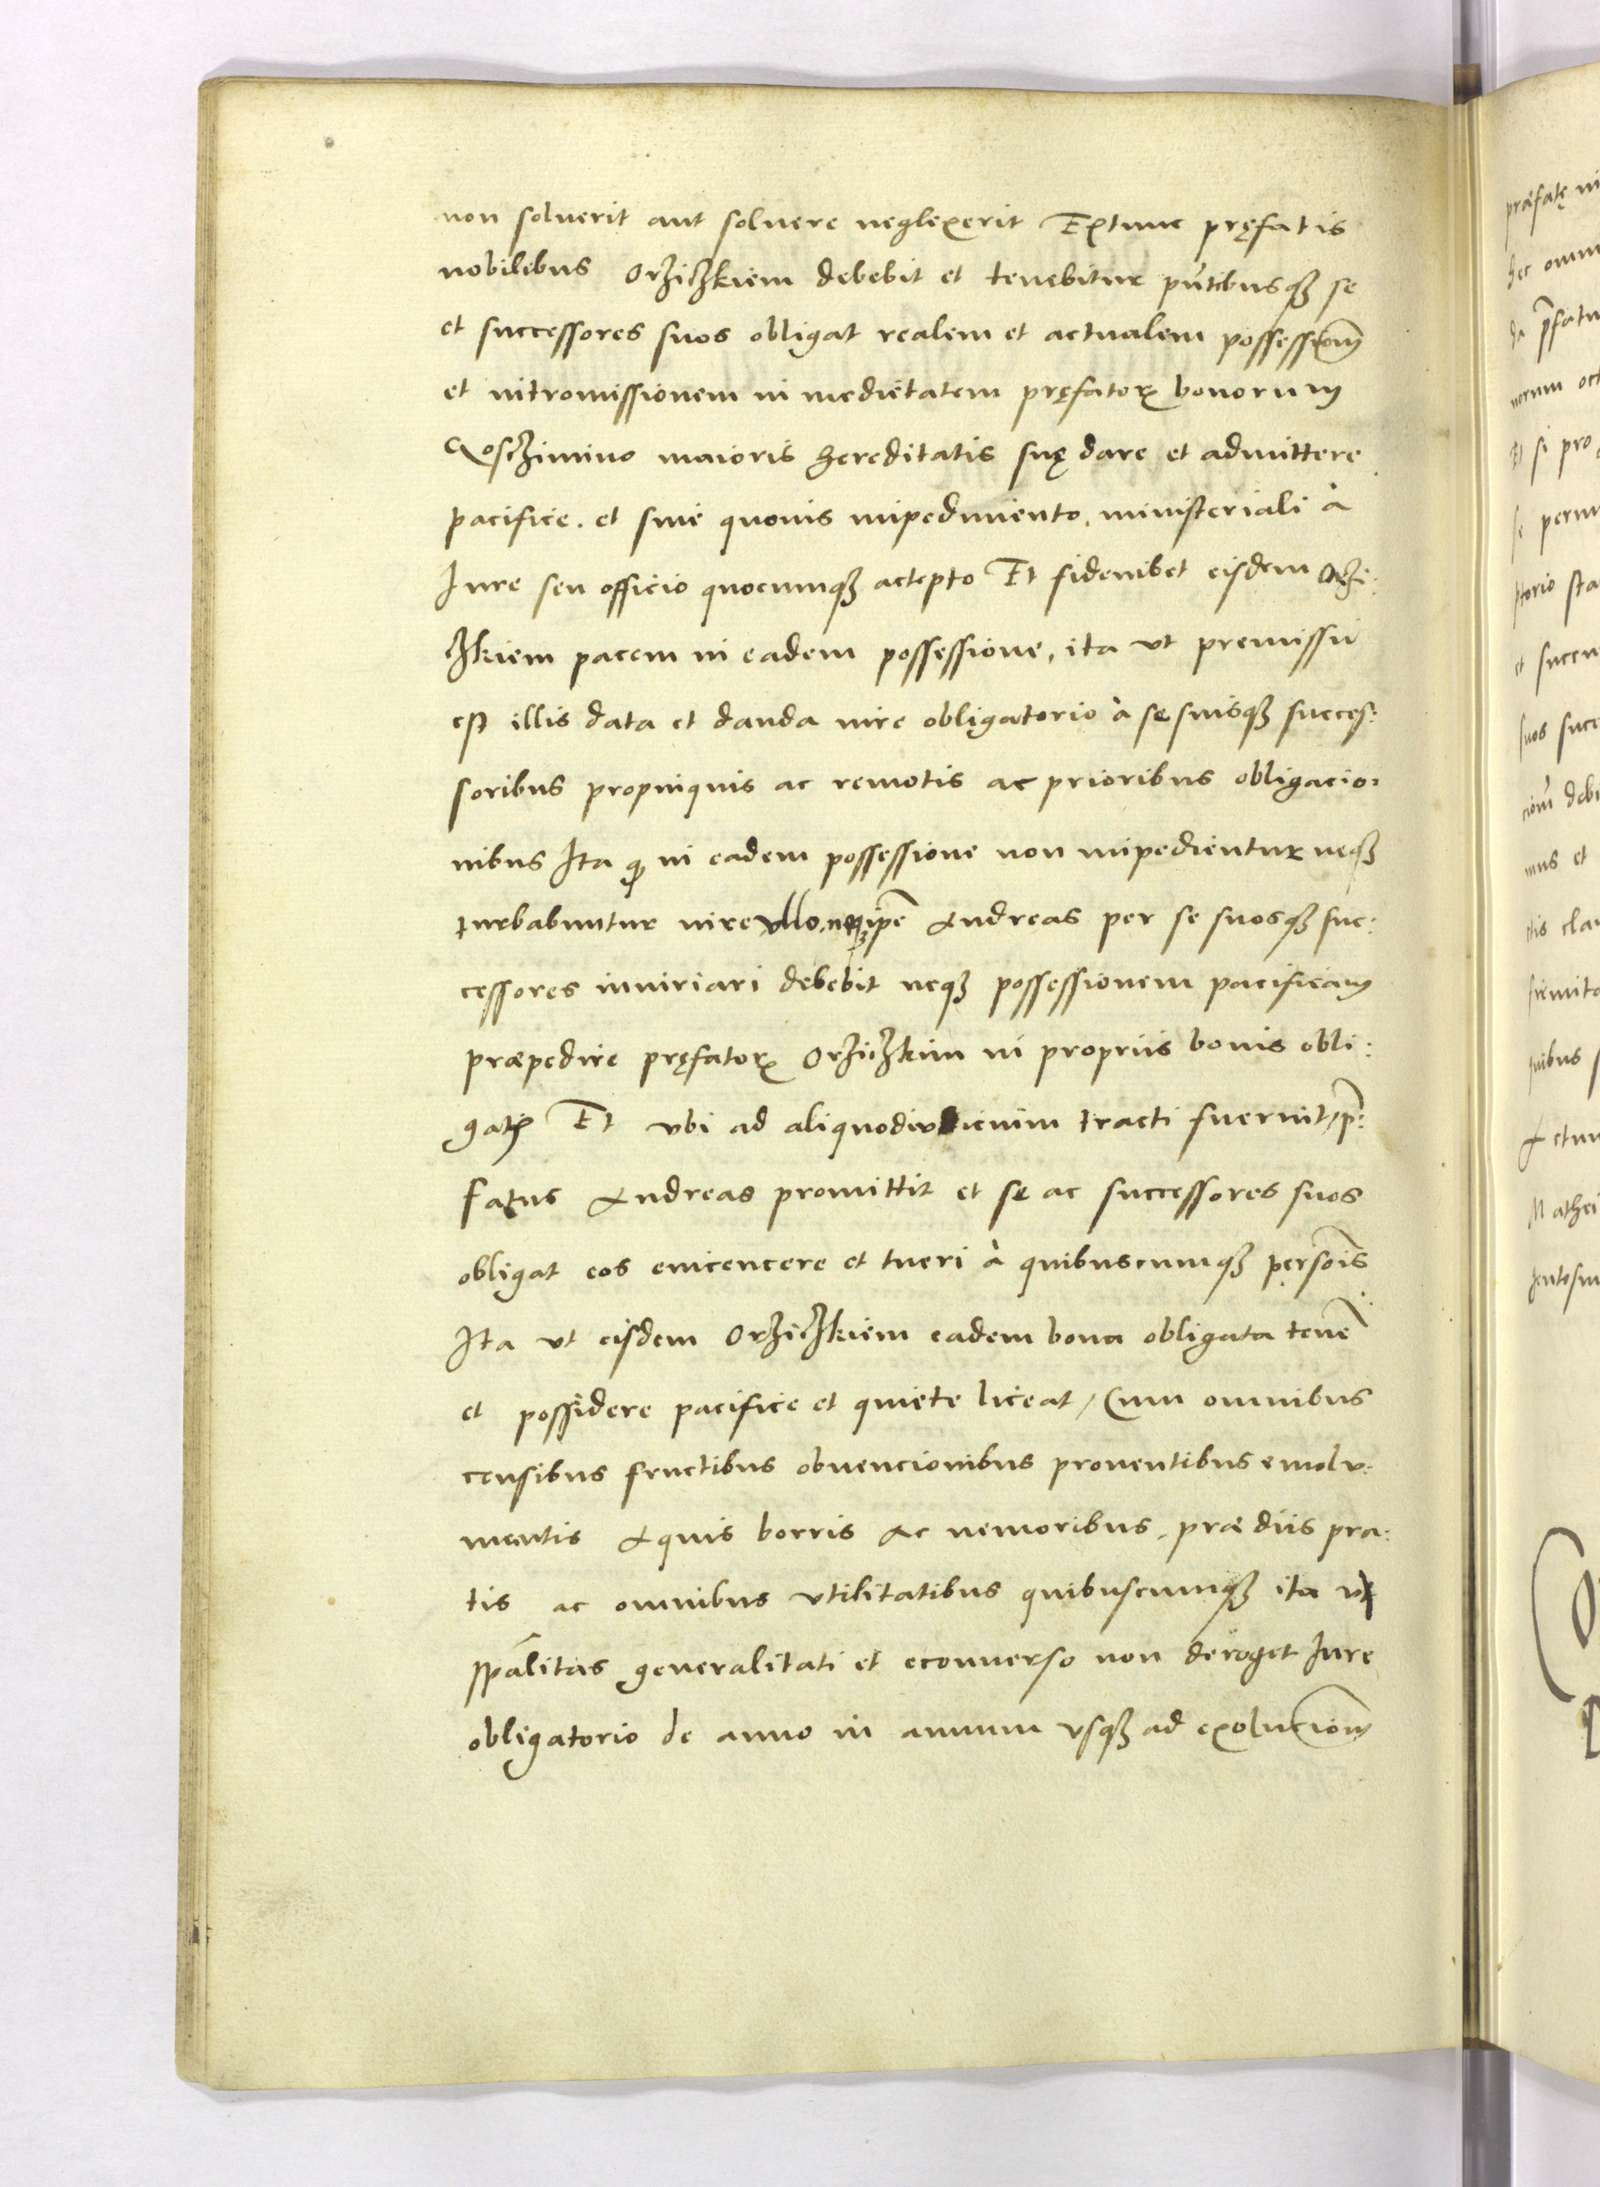 non soluerit aut soluere neglexerit Extunc pręfatis
nobilibus Orziczkiem debebit et tenebitur pñtibusq3 se
et successores suos obligat realem et actualem possessionẽ
et intromissionem in medietatem pręfatoꝝ bonorum
maioris hereditatis suę dare et admittere
pacifice. et sine quouis impedimento, ministeriali à
Iure seu officio quocumq3 accepto Et fideiubet eisdem Orzi:
czkiem pacem in eadem possessione, ita vt premissũ
est illis data et danda iure obligatorio à se suisq3 succes:
soribus propinquis ac remotis ac prioribus obligacio:
nibus Ita ꝙ in eadem possessione non impedientur neq3
turbabuntur iure vllo, neq3 ipẽ Andreas per se suosq3 suc:
cessores iniuriari debebit neq3 possessionem pacificam
præpedire pręfatoꝝ Orziczkim in propriis bonis obli:
gatꝭ Et vbi ad aliquod iudicium tracti fuerint, p̃:
fatus Andreas promittit et se ac successores suos
obligat eos euicencere et tueri à quibuscumq3 personis
Ita vt eisdem Orziczkiem eadem bona obligata tenẽ:
et possidere pacifice et quiete liceat, Cum omnibus
censibus fructibus obuencionibus prouentibus emolu:
mentis Aquis borris Ac nemoribus, prædiis pra:
tis ac omnibus vtilitatibus quibuscumq3 ita vt
sp̃alitas generalitati et econuerso non deroget Iure
obligatorio de anno in annum vsq3 ad exolucionẽ
præfatę
hec
p̃fatu
Et si pro
se
et
suos succ
et
Mathei